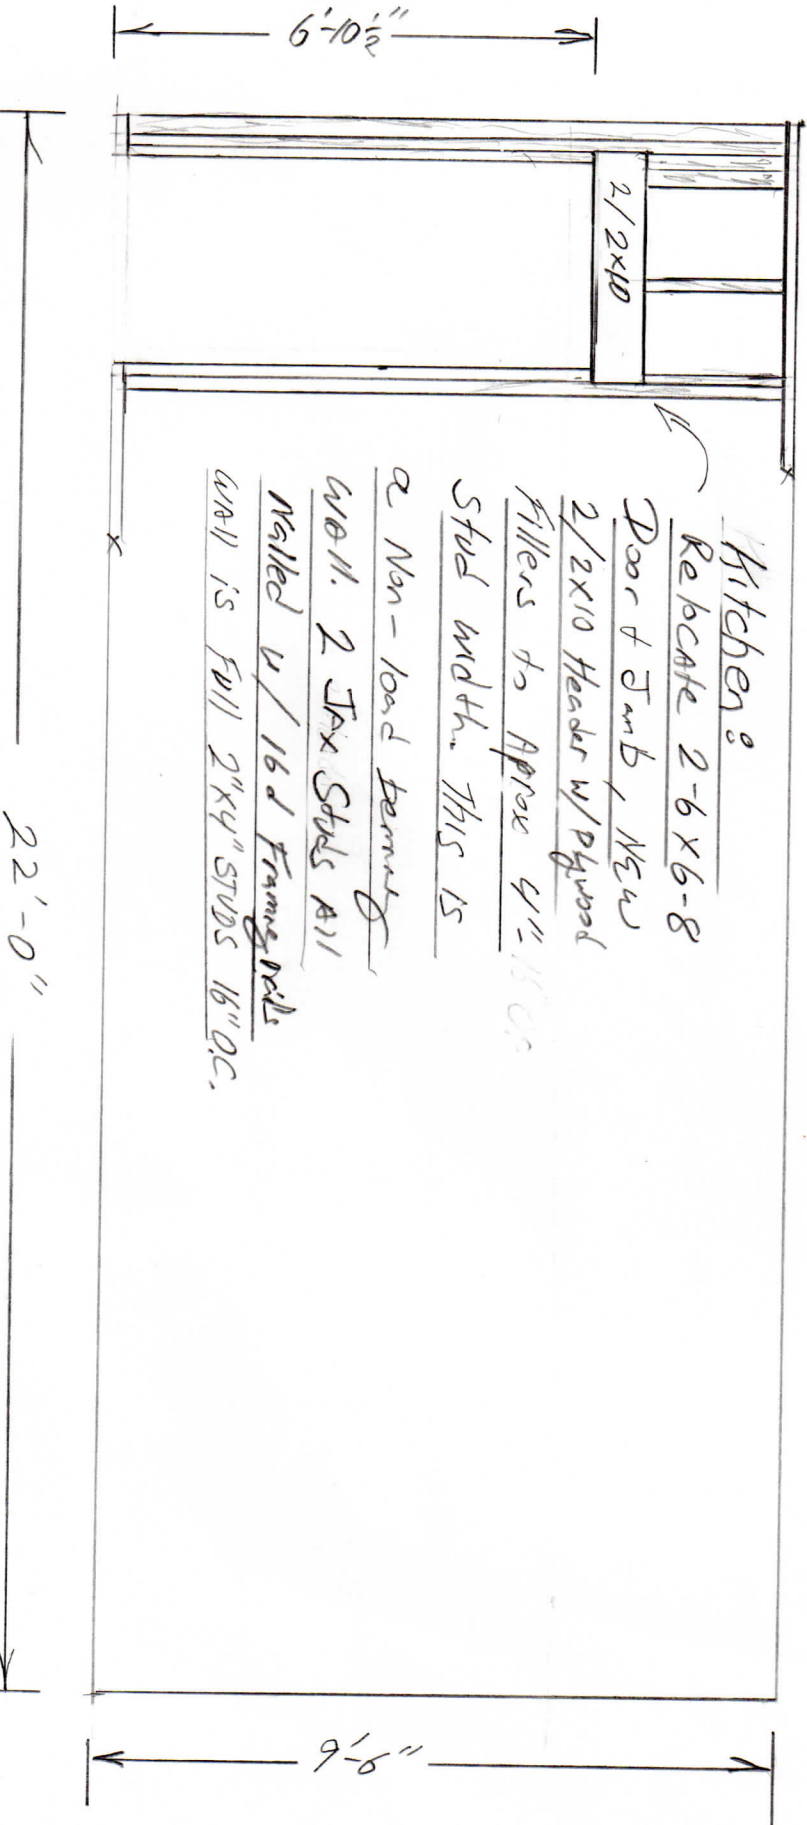 6'-10½"
2/2x10
Kitchen:
Relocate 2-6x6-8
Door & Jamb, New
2/2x10 Header w/Plywood
Fillers to Aprox 4"
Stud width. This is
a Non-load
Wall. 2 Studs All
Nailed w/ 16d Framing nails
Wall is Full 2"x4" STUDS 16" O.C.
22'-0"